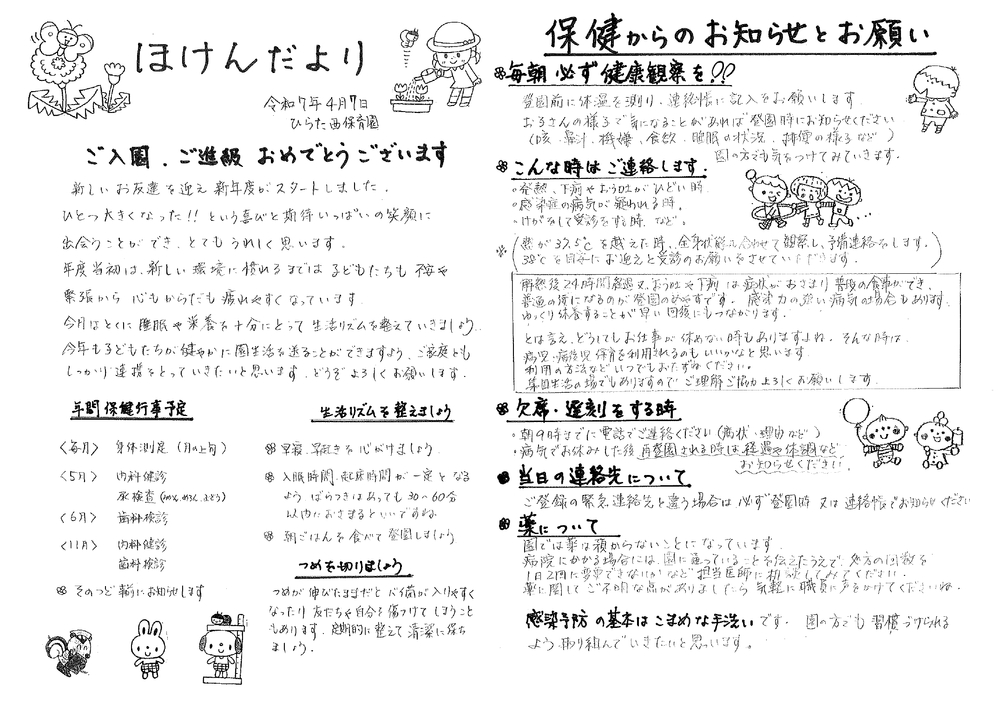 ほけんだより
令和7年4月7日
ひらた西保育園
ご入園、ご進級 おめでとうございます
新しいお友達を迎え新年度がスタートしました。
ひとつ大きくなった!! という喜びと期待いっぱいの笑顔に
出会うことができ、とてもうれしく思います。
年度当初は、新しい環境に慣れるまでは子どもたちも不安や
緊張から心もからだも疲れやすくなっています。
今月はとくに睡眠や栄養を十分にとって生活リズムを整えていきましょう。
今年も子どもたちが健やかに園生活を送ることができますよう、ご家庭とも
しっかり連携をとっていきたいと思います。どうぞよろしくお願いします。
年間保健行事予定
<毎月> 身体測定 (月の上旬)
<5月> 内科健診
尿検査 (めろん、ぶどう)
<6月> 歯科検診
<11月> 内科健診
歯科検診
※ そのつど事前にお知らせします
生活リズムを整えましょう
※ 早寝、早起きを心がけましょう
※ 入眠時間、起床時間が一定となる
よう ばらつきはあっても30~60分
以内におさまるといいですね
※ 朝ごはんを食べて登園しましょう
つめを切りましょう
つめが伸びたままだとバイ菌が入りやすく
なったり友だちや自分を傷つけてしまうこと
もあります。定期的に整えて清潔に保ち
ましょう。
保健からのお知らせとお願い
※毎朝必ず健康観察を!!
登園前に体温を測り、連絡帳に記入をお願いします。
お子さんの様子で気になることがあれば登園時にお知らせください
(咳、鼻汁、機嫌、食欲、睡眠の状況、排便の様子など)
園の方でも気をつけてみていきます。
※こんな時はご連絡します。
・発熱、下痢やおう吐がひどい時。
・感染症の病気が疑われる時。
・けがをして受診をする時、など。
※(熱が37.5℃を越えた時、全身状態に合わせて観察し、予備連絡をします。
38℃を目安にお迎えと受診のお願いをさせていただきます。)
解熱後24時間経過又、おう吐や下痢は症状がおさまり普段の食事ができ、
普通の便になるのが登園のめやすです。感染力の強い病気の場合もあります。
ゆっくり休養することが早い回復にもつながります。
とは言え、どうしてもお仕事が休めない時もありますよね。そんな時は、
病児・病後児保育を利用されるのもいいかなと思います。
利用の方法などいつでもおたずねください。
集団生活の場でもありますのでご理解ご協力よろしくお願いします。
※欠席・遅刻をする時
・朝9時までに電話でご連絡ください(病状・理由など)
・病気でお休みした後再登園される時は経過や体調など
お知らせください。
※当日の連絡先について
ご登録の緊急連絡先と違う場合は必ず登園時又は連絡帳でお知らせください
※薬について
園では薬は預からないことになっています。
病院にかかる場合には、園に通っていることを伝えたうえで、処方の回数を
1日2回に変更できないかなど担当医師に相談してみてください。
薬に関してご不明な点がありましたら気軽に職員に声をかけてくださいね。
感染予防の基本はこまめな手洗いです。園の方でも習慣づけられる
よう取り組んでいきたいと思っています。